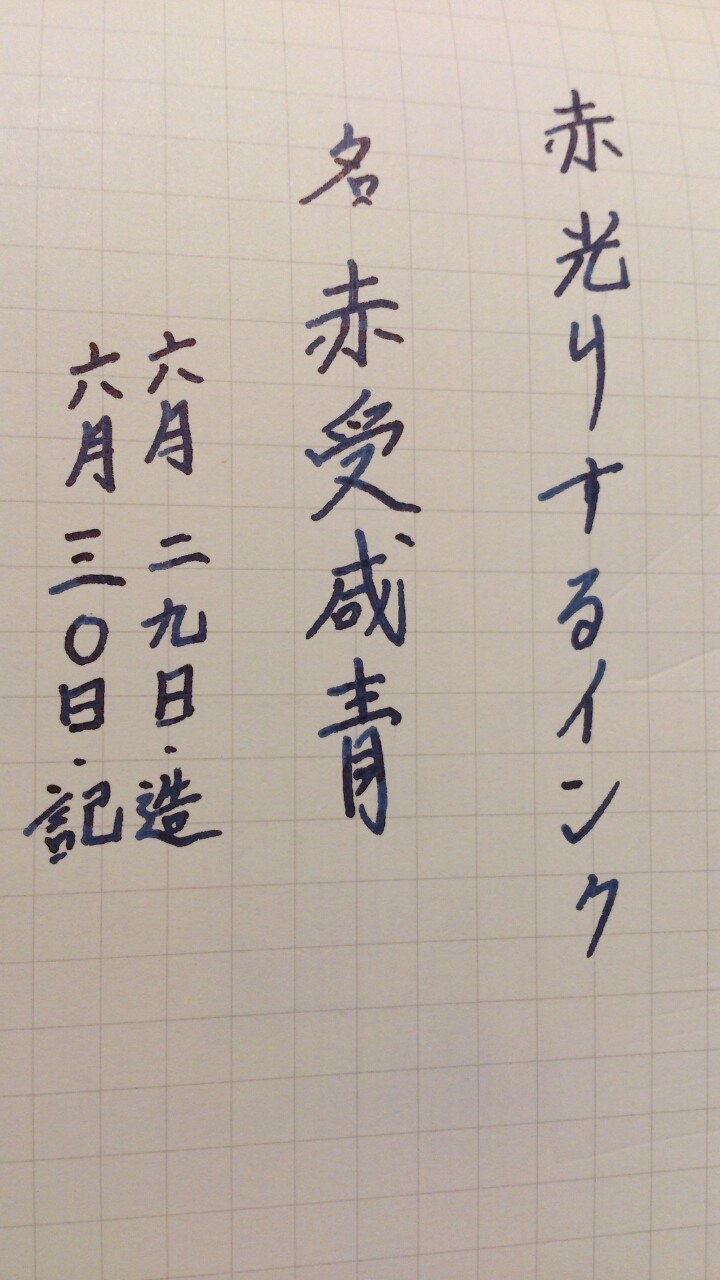 赤光りするインク
名赤受咸青
六月二九日・造
六月三〇日・記